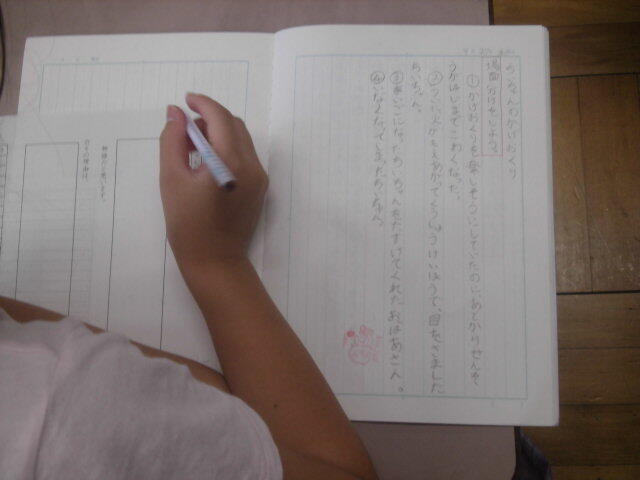 ちいちゃんのかげおくり
場面分けをしよう。
①かげおくりを楽しそうにしていたのにあとからせんそ
うがはじまってこわくなった。
②ついに火がもえあがってくうしゅうけいほうで、目をさました
ちいちゃん。
③まいごになったちいちゃんをたすけてくれたおばあさん。
④いなくなってしまったちいちゃん。
物語だと思います。